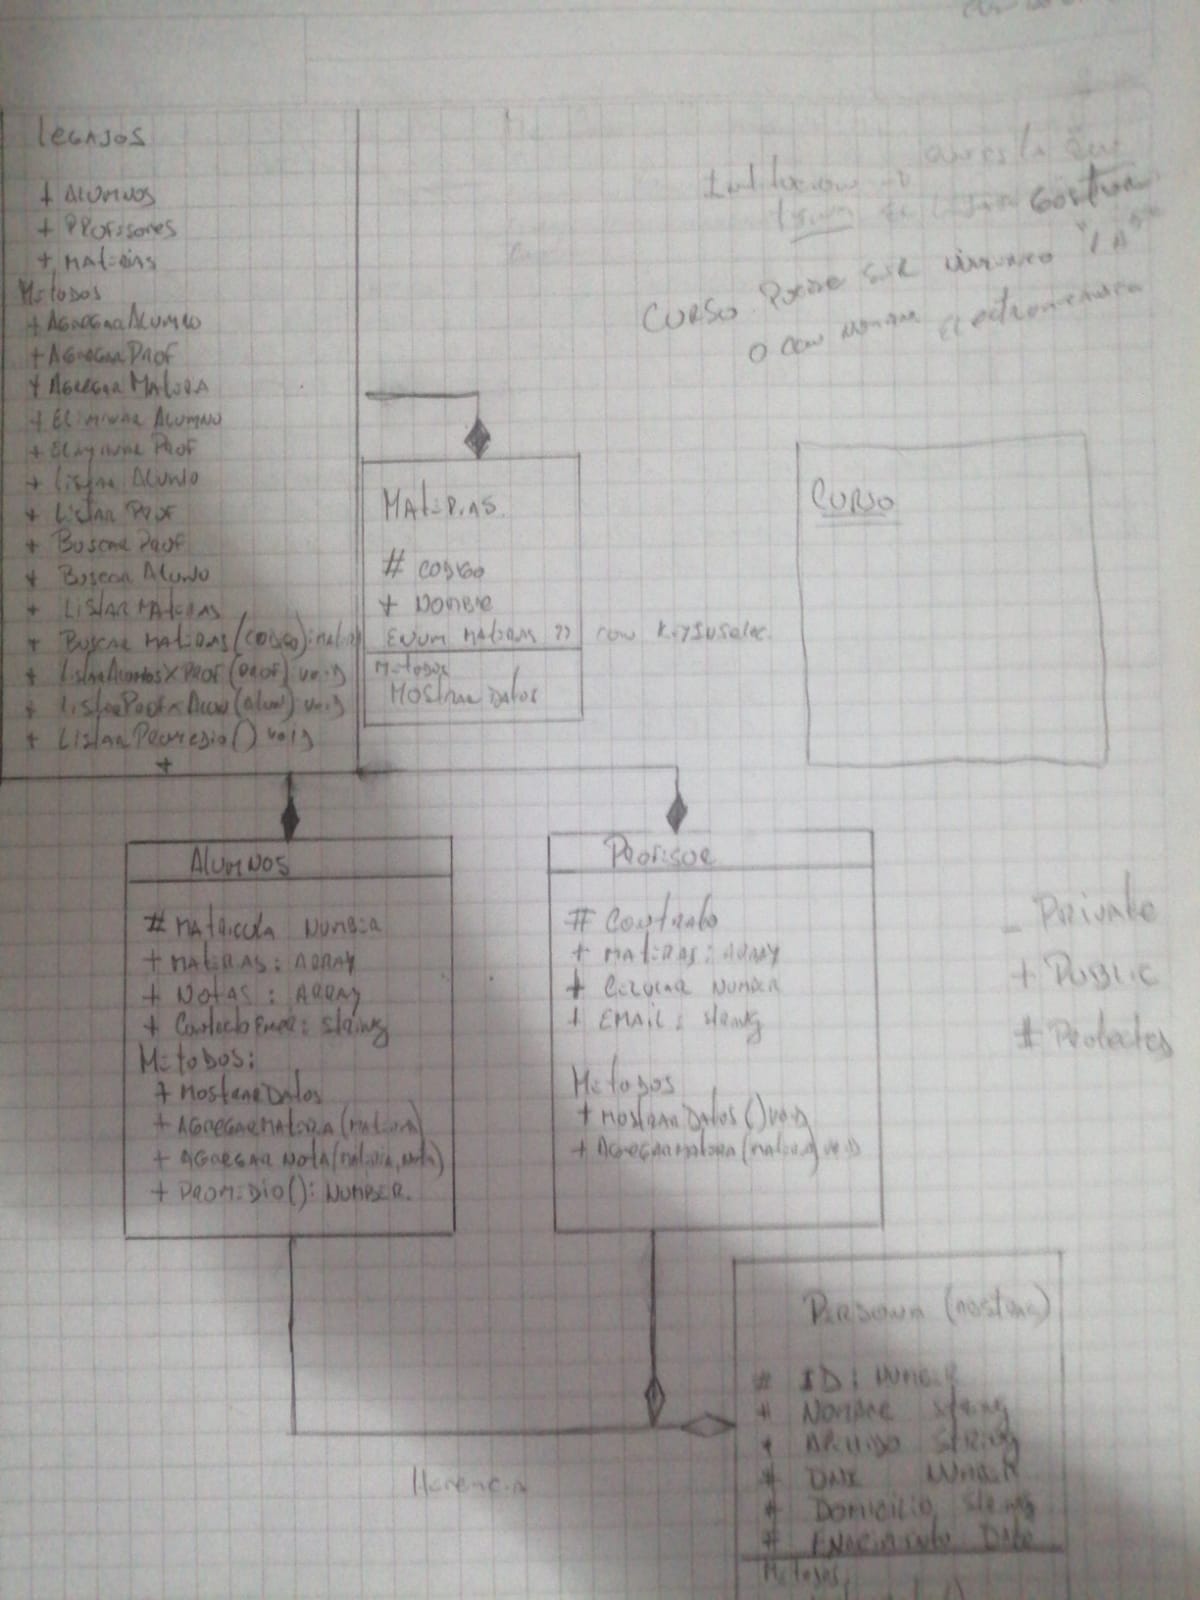 Legajos
+ Alumnos
+ Profesores
+ Materias
Metodos
+ AgregarAlumno
+ Agregar Prof
+ Agregar Materia
+ Eliminar Alumno
+ Eliminar Prof
+ Listar Alumno
+ Listar Prof
+ Buscar Prof
+ Buscar Alumno
+ Listar Materias
+ Buscar Materias (codigo):
+ ListarAlumnosXProf (Prof) void
+ ListarProfxAlum (alum) void
+ Listar Promedio () void
+
Institucion
gestiona
Curso Puede ser numerico "1A"
o con nombre electromecanica
Materias.
# codigo
+ Nombre
Enum Materias ?? con
Metodos
Mostrar Datos
Curso
Alumnos
# Matricula Number
+ Materias: Array
+ Notas: Array
+ : String
Metodos:
+ MostrarDatos
+ AgregarMateria (Materia)
+ Agregar Nota (materia, nota)
+ Promedio(): Number.
Profesor
# Contrato
+ Materias: Array
+ Celular Number
+ Email: String
Metodos
+ MostrarDatos () void
+ AgregarMateria (materia) void
_ Private
+ Public
# Protected
Persona
# ID: Number
+ Nombre String
+ Apellido String
# DNI Number
# Domicilio String
# FNacimiento Date
Metodos
Herencia